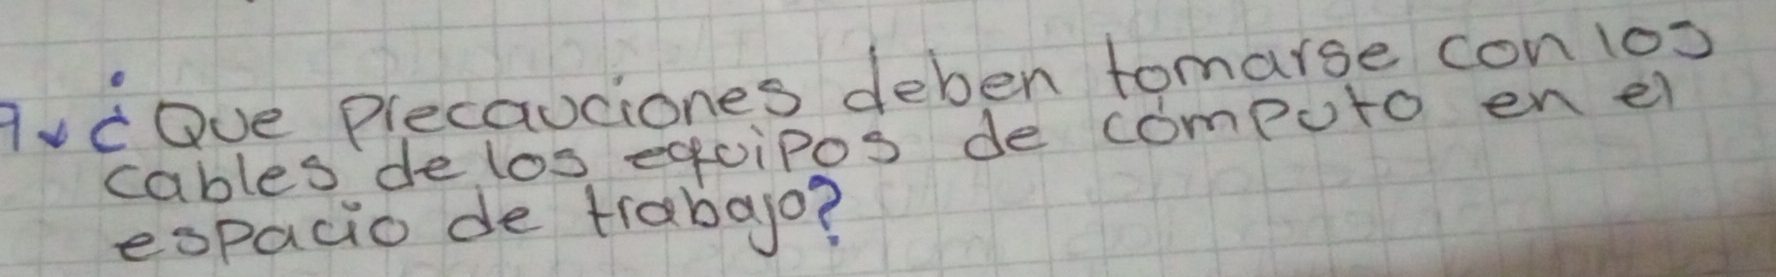 9. ¿Que Precauciones deben tomarse con los
cables de los equipos de cómputo en el
espacio de trabajo?